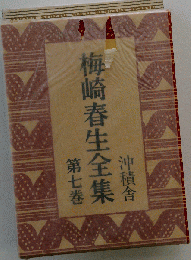 梅崎春生全集
第七巻
沖積舎